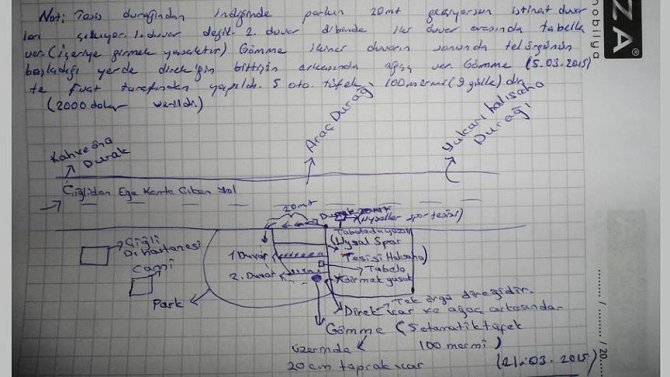 Not: Tesis durağından indiğinde parkın 20mt geçiyorsun istinat duvar
ları çıkıyor. 1. duvar değil 2. duvar dibinde iki duvar arasında tabella
var (içeriye girmek yasaktır) Gömme ikinci duvarın sonunda tel örgünün
başladığı yerde direk'in bittiğin arkasında ağaç var. Gömme (5.03.2015)
te fuat tarafından yapıldı. 5 oto. tüfek, 100 mermi (9 gülle) dir
(2000 dolar verildi.)
ZA
mobilya
Kahve önü
Durak
Araç Durağı
Yukarı halısaha
Durağı
Çiğliden Ege Kente Çıkan Yol
20mt
Durak
Tabelada yazılı
(Uysal Spor
Tesisi Halısaha)
Çiğli
Diş hastanesi
Cami
Park
1. Duvar
2. Duvar
Tabela
Girmek yasak
Direk
Tek örgü direğidir.
var ve ağaç arkasındar
Gömme (5 otomatik tüfek
100 mermi)
üzerinde
20 cm toprak var
(21.03.2015)
/ 20